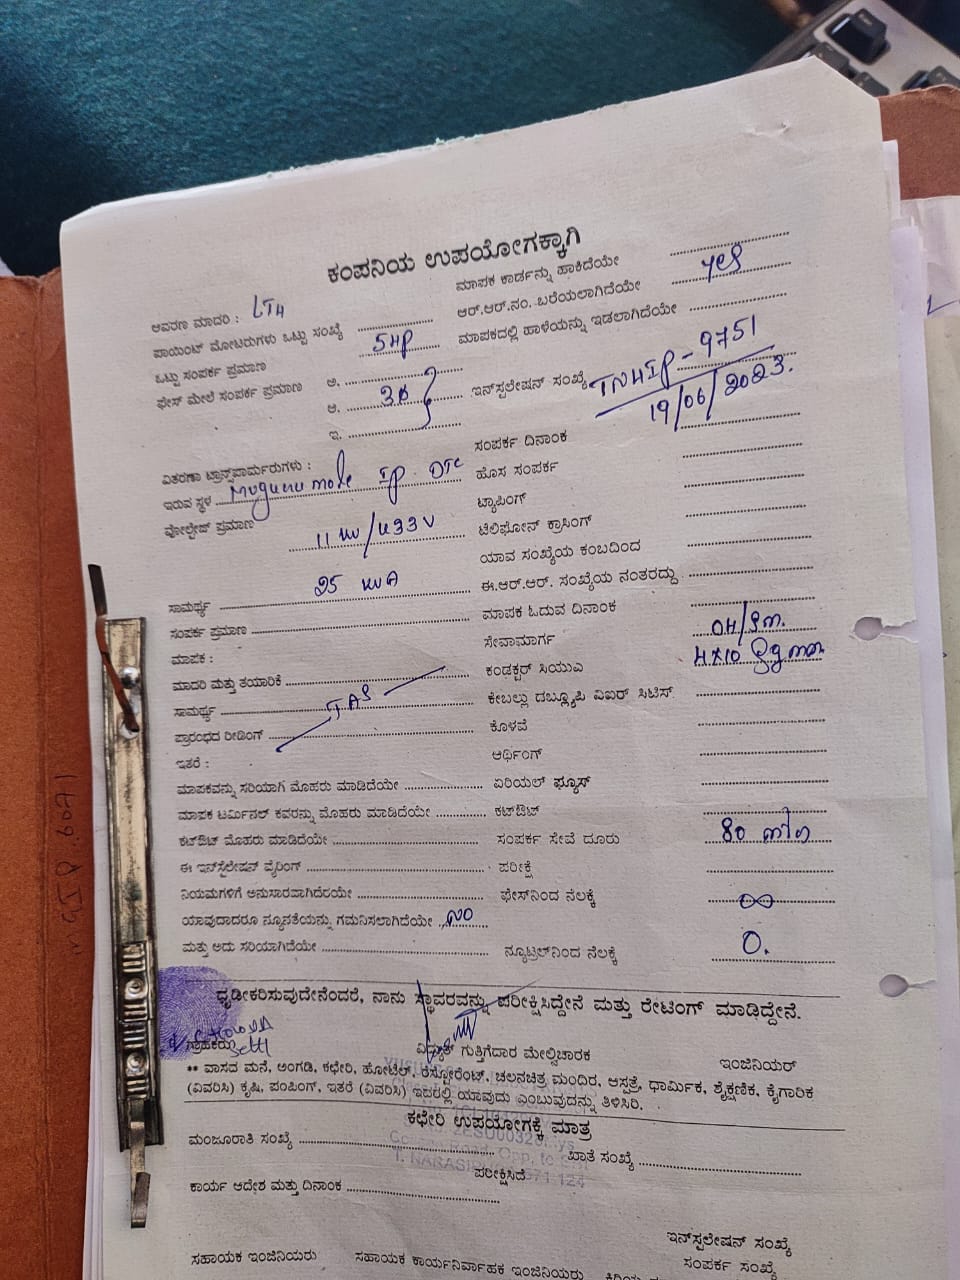 ಕಂಪನಿಯ ಉಪಯೋಗಕ್ಕಾಗಿ
ಆವರಣ ಮಾದರಿ : LT4
ಮಾಪಕ ಕಾರ್ಡನ್ನು ಹಾಕಿದೆಯೇ
ಪಾಯಿಂಟ್ ಮೋಟರುಗಳು ಒಟ್ಟು ಸಂಖ್ಯೆ
ಆರ್.ಆರ್.ನಂ. ಬರೆಯಲಾಗಿದೆಯೇ yes
ಒಟ್ಟು ಸಂಪರ್ಕ ಪ್ರಮಾಣ 5HP
ಮಾಪಕದಲ್ಲಿ ಹಾಳೆಯನ್ನು ಇಡಲಾಗಿದೆಯೇ
ಫೇಸ್ ಮೇಲೆ ಸಂಪರ್ಕ ಪ್ರಮಾಣ ಅ.
ಆ. 3ø
ಇ.
ಇನ್‌ಸ್ಪಲೇಷನ್ ಸಂಖ್ಯೆ TN4IP-9751
19/06/2023.
ಸಂಪರ್ಕ ದಿನಾಂಕ
ವಿತರಣಾ ಟ್ರಾನ್ಸ್‌ಪಾರ್ಮರುಗಳು :
ಹೊಸ ಸಂಪರ್ಕ
ಇರುವ ಸ್ಥಳ IP DTC
ಟ್ಯಾಪಿಂಗ್
ವೋಲ್ಟೇಜ್ ಪ್ರಮಾಣ 11 KV/433V
ಟೆಲಿಫೋನ್ ಕ್ರಾಸಿಂಗ್
ಯಾವ ಸಂಖ್ಯೆಯ ಕಂಬದಿಂದ
ಸಾಮರ್ಥ್ಯ 25 KVA
ಈ.ಆರ್.ಆರ್. ಸಂಖ್ಯೆಯ ನಂತರದ್ದು
ಸಂಪರ್ಕ ಪ್ರಮಾಣ
ಮಾಪಕ ಓದುವ ದಿನಾಂಕ
ಮಾಪಕ :
ಸೇವಾಮಾರ್ಗ OH/
ಮಾದರಿ ಮತ್ತು ತಯಾರಿಕೆ
ಕಂಡಕ್ಟರ್ ಸಿಯುಎ 4x10
ಸಾಮರ್ಥ್ಯ
ಕೇಬಲ್ಲು ಡಬ್ಲ್ಯೂಪಿ ವಿಐರ್ ಸಿಟಿಸ್
ಪ್ರಾರಂಭದ ರೀಡಿಂಗ್
ಕೊಳವೆ
ಇತರೆ :
ಆರ್ಥಿಂಗ್
ಮಾಪಕವನ್ನು ಸರಿಯಾಗಿ ಮೊಹರು ಮಾಡಿದೆಯೇ
ಏರಿಯಲ್ ಫ್ಯೂಸ್
ಮಾಪಕ ಟರ್ಮಿನಲ್ ಕವರನ್ನು ಮೊಹರು ಮಾಡಿದೆಯೇ
ಕಟ್‌ಔಟ್
ಕಟ್‌ಔಟ್ ಮೊಹರು ಮಾಡಿದೆಯೇ
ಸಂಪರ್ಕ ಸೇವೆ ದೂರು 80
ಈ ಇನ್‌ಸ್ಟೆಲೇಷನ್ ವೈರಿಂಗ್
ಪರೀಕ್ಷೆ
ನಿಯಮಗಳಿಗೆ ಅನುಸಾರವಾಗಿದೆರಯೇ
ಫೇಸ್‌ನಿಂದ ನೆಲಕ್ಕೆ ∞
ಯಾವುದಾದರೂ ನ್ಯೂನತೆಯನ್ನು ಗಮನಿಸಲಾಗಿದೆಯೇ NO
ಮತ್ತು ಅದು ಸರಿಯಾಗಿದೆಯೇ
ನ್ಯೂಟ್ರಲ್‌ನಿಂದ ನೆಲಕ್ಕೆ 0.
ಧೃಡೀಕರಿಸುವುದೇನೆಂದರೆ, ನಾನು ಸ್ಥಾವರವನ್ನು ಪರೀಕ್ಷಿಸಿದ್ದೇನೆ ಮತ್ತು ರೇಟಿಂಗ್ ಮಾಡಿದ್ದೇನೆ.
ಗ್ರಾಹಕರು
ವಿದ್ಯುತ್ ಗುತ್ತಿಗೆದಾರ ಮೇಲ್ವಿಚಾರಕ
ಇಂಜಿನಿಯರ್
** ವಾಸದ ಮನೆ, ಅಂಗಡಿ, ಕಛೇರಿ, ಹೋಟೆಲ್, ರೆಸ್ಟೋರೆಂಟ್, ಚಲನಚಿತ್ರ ಮಂದಿರ, ಆಸ್ಪತ್ರೆ, ಧಾರ್ಮಿಕ, ಶೈಕ್ಷಣಿಕ, ಕೈಗಾರಿಕ
(ವಿವರಿಸಿ) ಕೃಷಿ, ಪಂಪಿಂಗ್, ಇತರೆ (ವಿವರಿಸಿ) ಇದರಲ್ಲಿ ಯಾವುದು ಎಂಬುವುದನ್ನು ತಿಳಿಸಿರಿ.
ಕಛೇರಿ ಉಪಯೋಗಕ್ಕೆ ಮಾತ್ರ
ಮಂಜೂರಾತಿ ಸಂಖ್ಯೆ
ಖಾತೆ ಸಂಖ್ಯೆ
ಪರೀಕ್ಷಿಸಿದೆ
ಕಾರ್ಯ ಆದೇಶ ಮತ್ತು ದಿನಾಂಕ
ಇನ್‌ಸ್ಪಲೇಷನ್ ಸಂಖ್ಯೆ
ಸಹಾಯಕ ಇಂಜಿನಿಯರು
ಸಹಾಯಕ ಕಾರ್ಯನಿರ್ವಾಹಕ ಇಂಜಿನಿಯರು
ಸಂಪರ್ಕ ಸಂಖ್ಯೆ